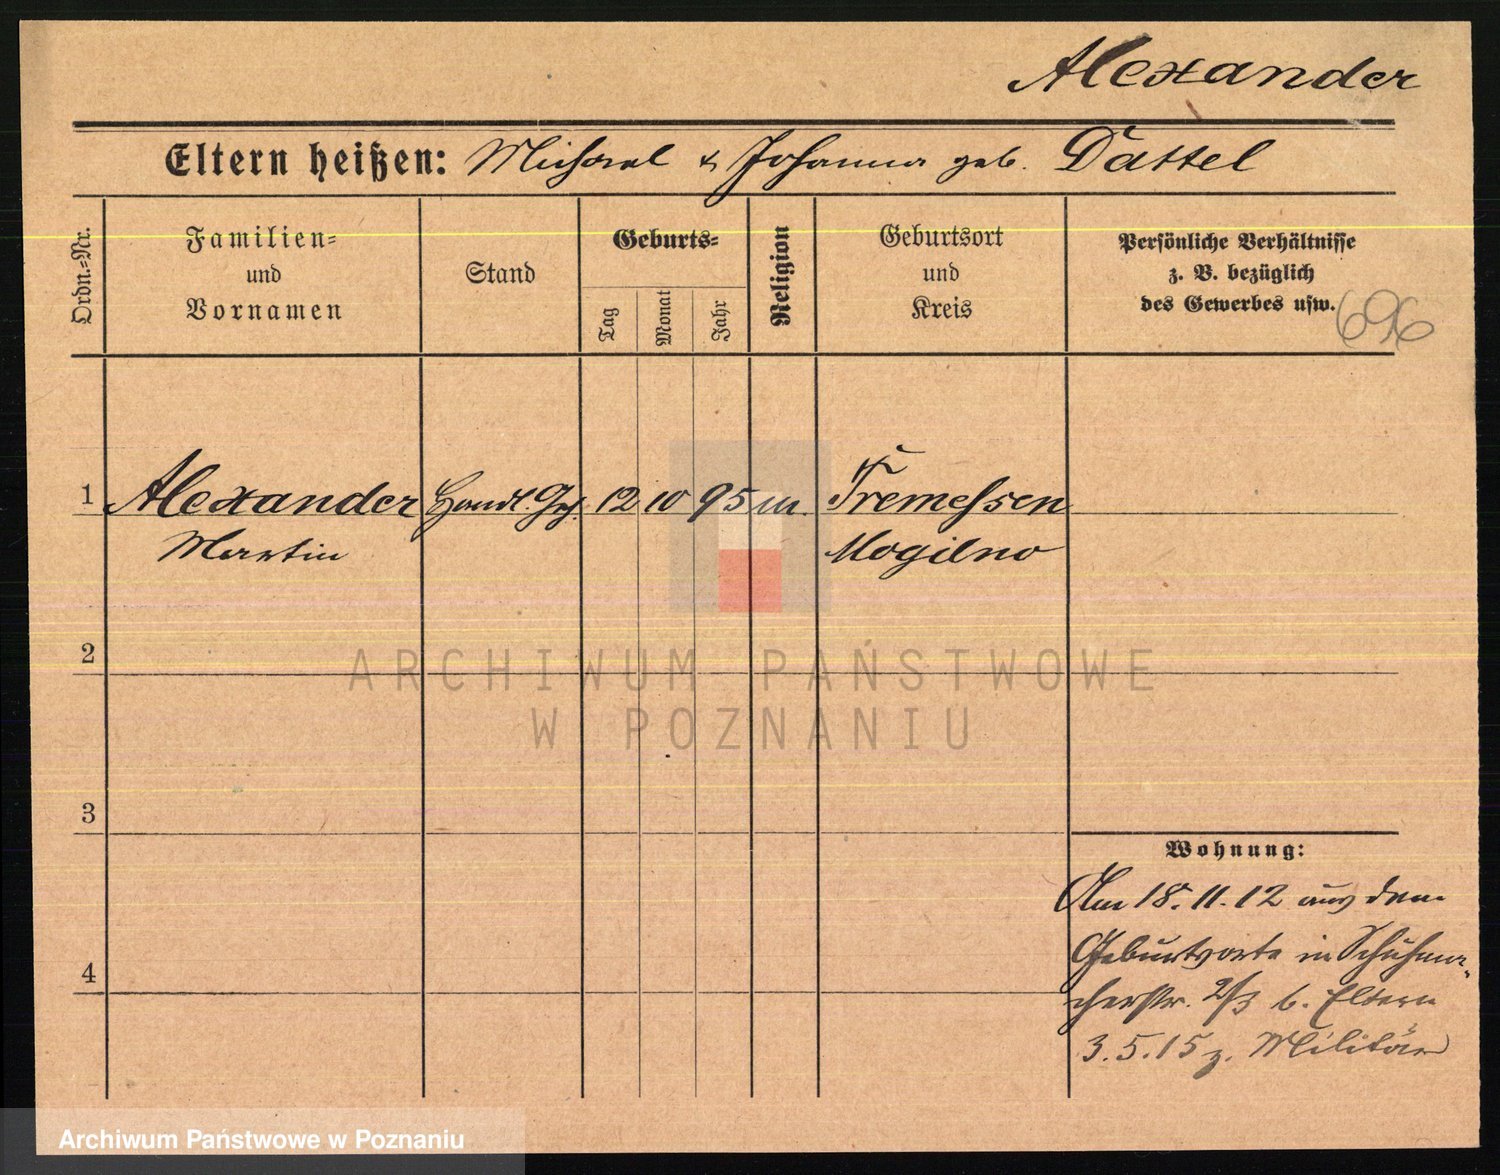 Alexander
Eltern heißen: Michael & Johanna geb. Dattel
Ordn.-Nr.
Familien-
und
Vornamen
Stand
Geburts-
Tag
Monat
Jahr
Religion
Geburtsort
und
Kreis
Persönliche Verhältnisse
z. B. bezüglich
des Gewerbes usw.
696
1 Alexander Handl. Geh. 12 10 95 m. Tremessen
Martin Mogilno
2
ARCHIWUM PAŃSTWOWE
W POZNANIU
3
Wohnung:
Am 18.11.12 aus dem
Geburtsorte in Schuhma-
cherstr. 2/3 b. Eltern
4
3.5.15 z. Militär
Archiwum Państwowe w Poznaniu